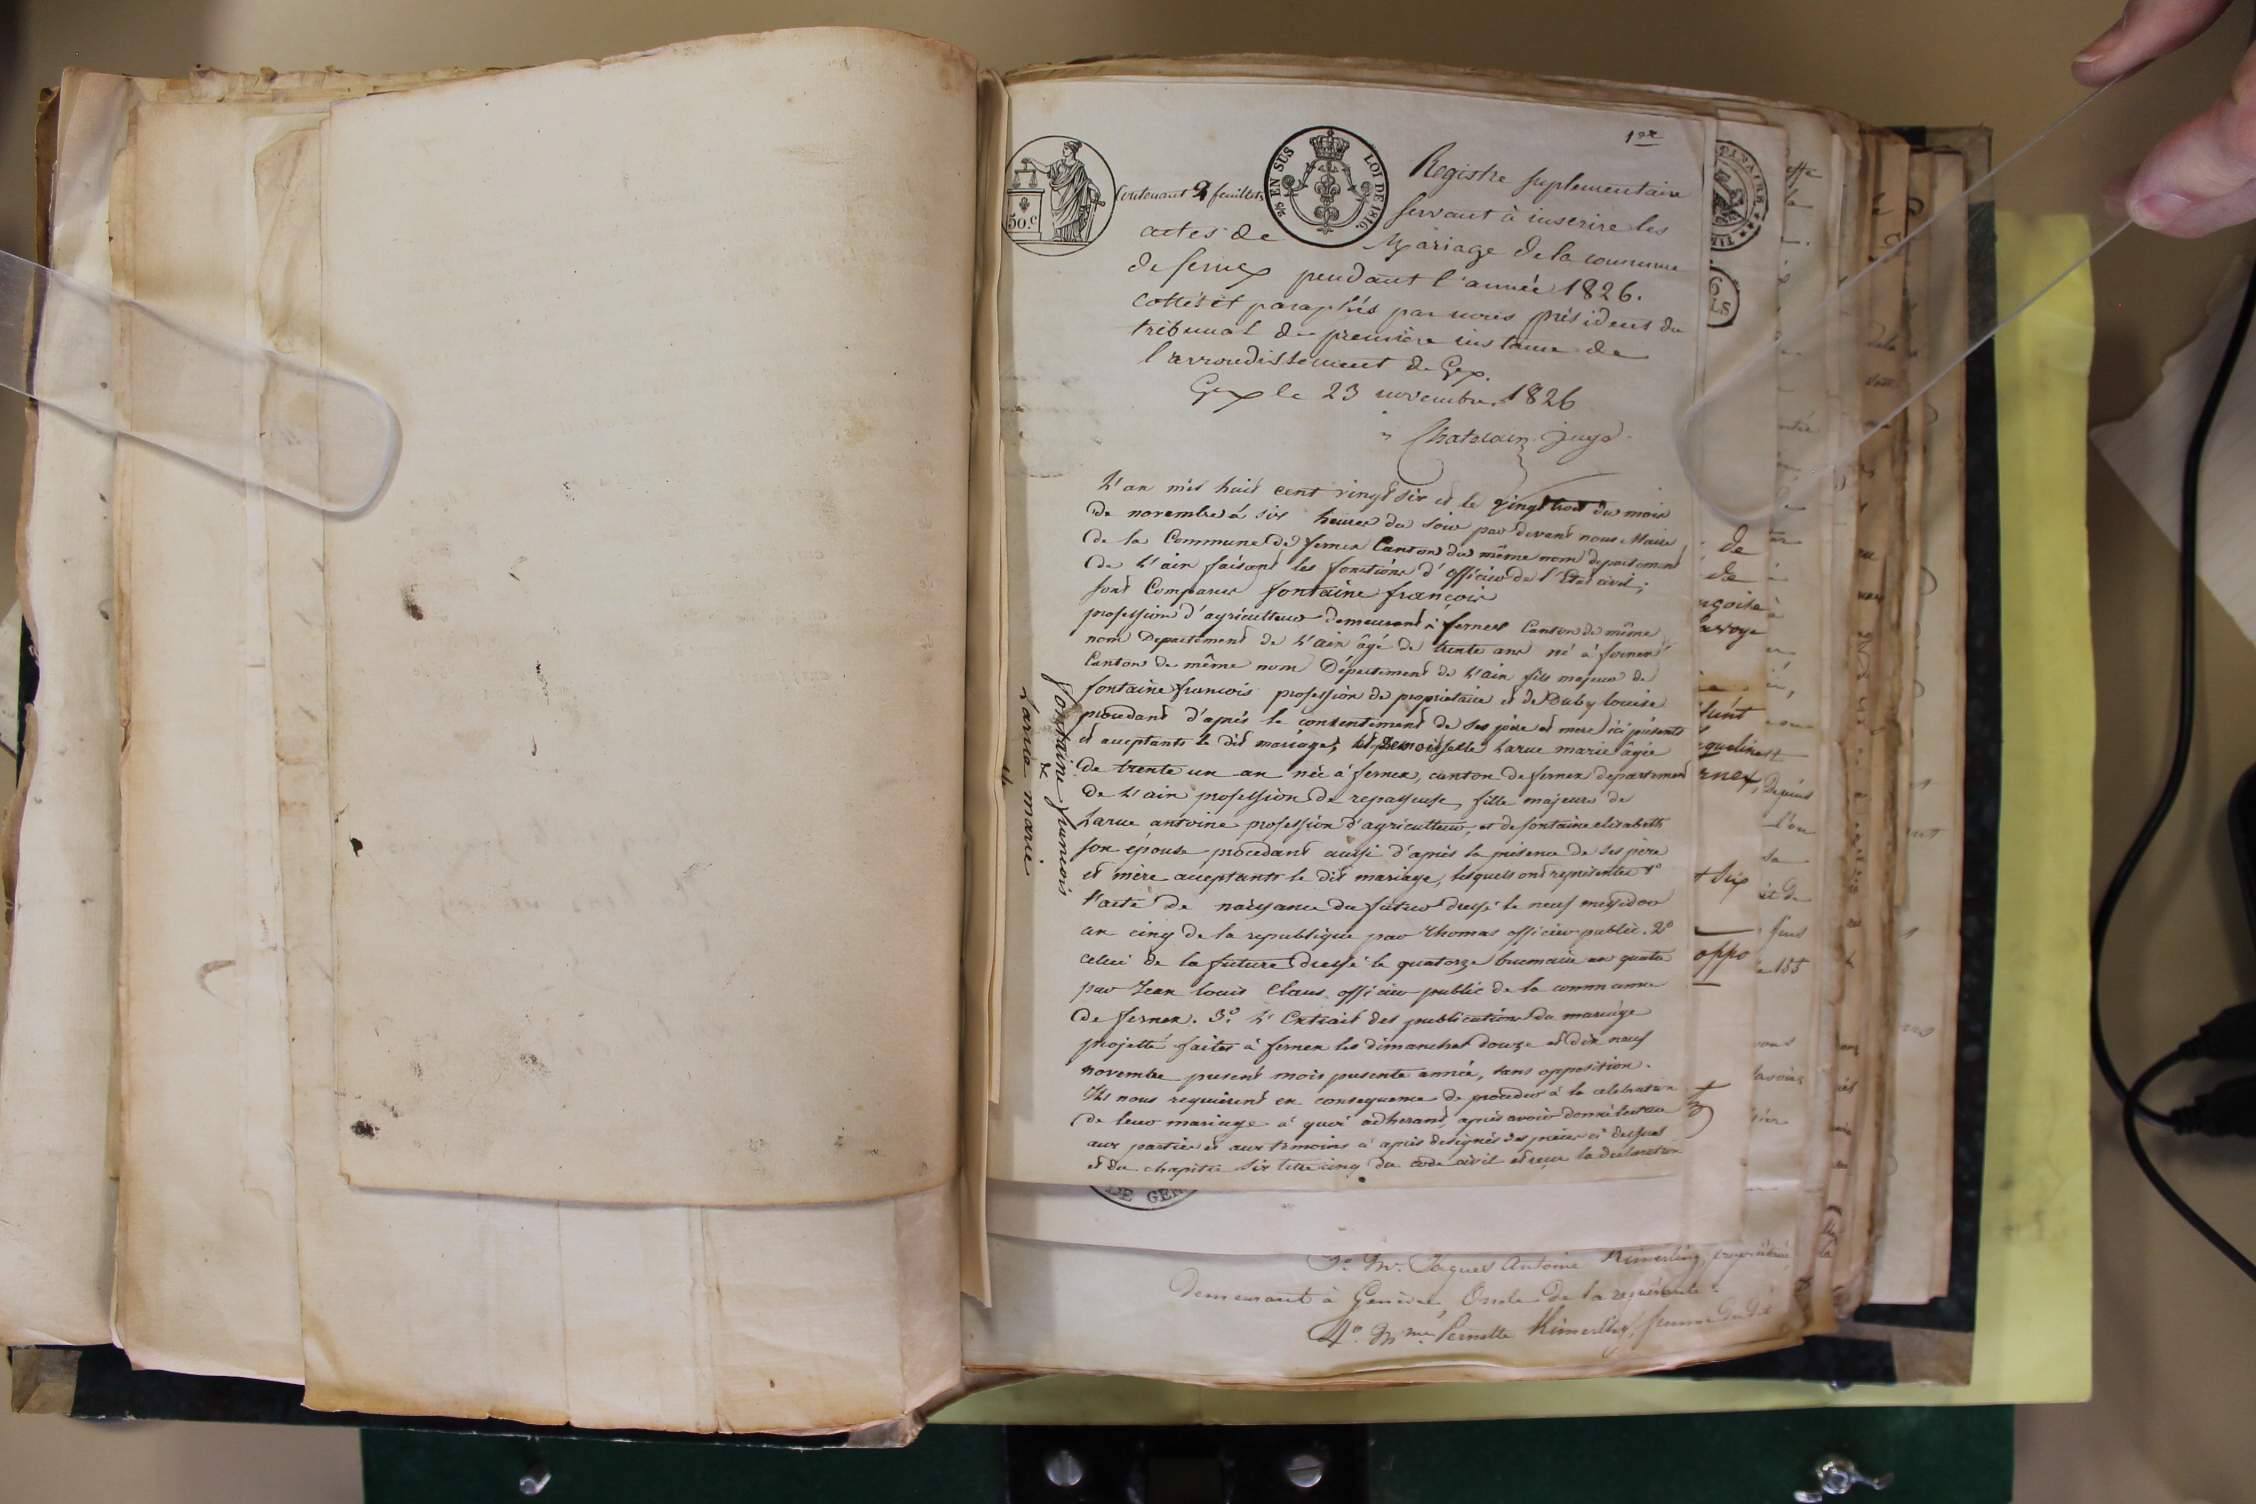 1er
50.c
Contenant 2 feuillets
2/5 EN SUS LOI DE 1816.
Registre suplementaire
servant à inscrire les
actes de Mariage de la commune
de fernex pendant l'année 1826.
Cottés et paraphés par nous président du
tribunal de première instance de
l'arrondissement de Gex.
Gex le 23 novembre 1826
Chatelain juge
L'an mil huit cent vingt six et le vingt trois du mois
de novembre à six heures du soir par devant nous Maire
de la Commune de fernex Canton du même nom departement
de L'ain faisant les fonctions d'officier de l'Etat civil;
sont Comparus fontaine françois
profession d'agriculteur demeurant à fernex Canton de même
nom Departement de L'ain âgé de trente ans né à fernex
Canton de même nom Département de L'ain fils majeur de
fontaine francois profession de propriétaire et de Duby louise
procedant d'après le consentement de ses père et mere ici présents
et acceptants le dit mariage, et Demoiselle Larue marie âgée
de trente un an née à fernex, canton de fernex departement
de L'ain profession de repasseuse, fille majeure de
Larue antoine profession d'agriculteur, et de fontaine elisabeth
son épouse procedant aussi d'après la présence de ses pere
et mère acceptants le dit mariage, lesquels ont représentés 1°
l'acte de naissance du futur dressé le neuf messidor
an cinq de la republique par Thomas officier public. 2°
celui de la future dressé le quatorze brumaire an quatre
par Jean louis Claus officier public de la commune
de fernex. 3° L'Extrait des publications du mariage
projetté faites à fernex les dimanches douze et dix neuf
novembre present mois presente année, sans opposition.
Ils nous requièrent en consequence de proceder à la celebration
de leur mariage à quoi adherant, après avoir donné lecture
aux parties et aux temoins ci après designés des pièces ci dessus
et du chapitre six titre cinq du code civil et reçu la declaration
fontaine francois
&
Larue marie
DE GEN
3° Mr. Jaques Antoine Kimerling, propriétaire,
demeurant à Genève, Oncle de la requérante.
4° Mme Pernette Kimerling, femme du dit